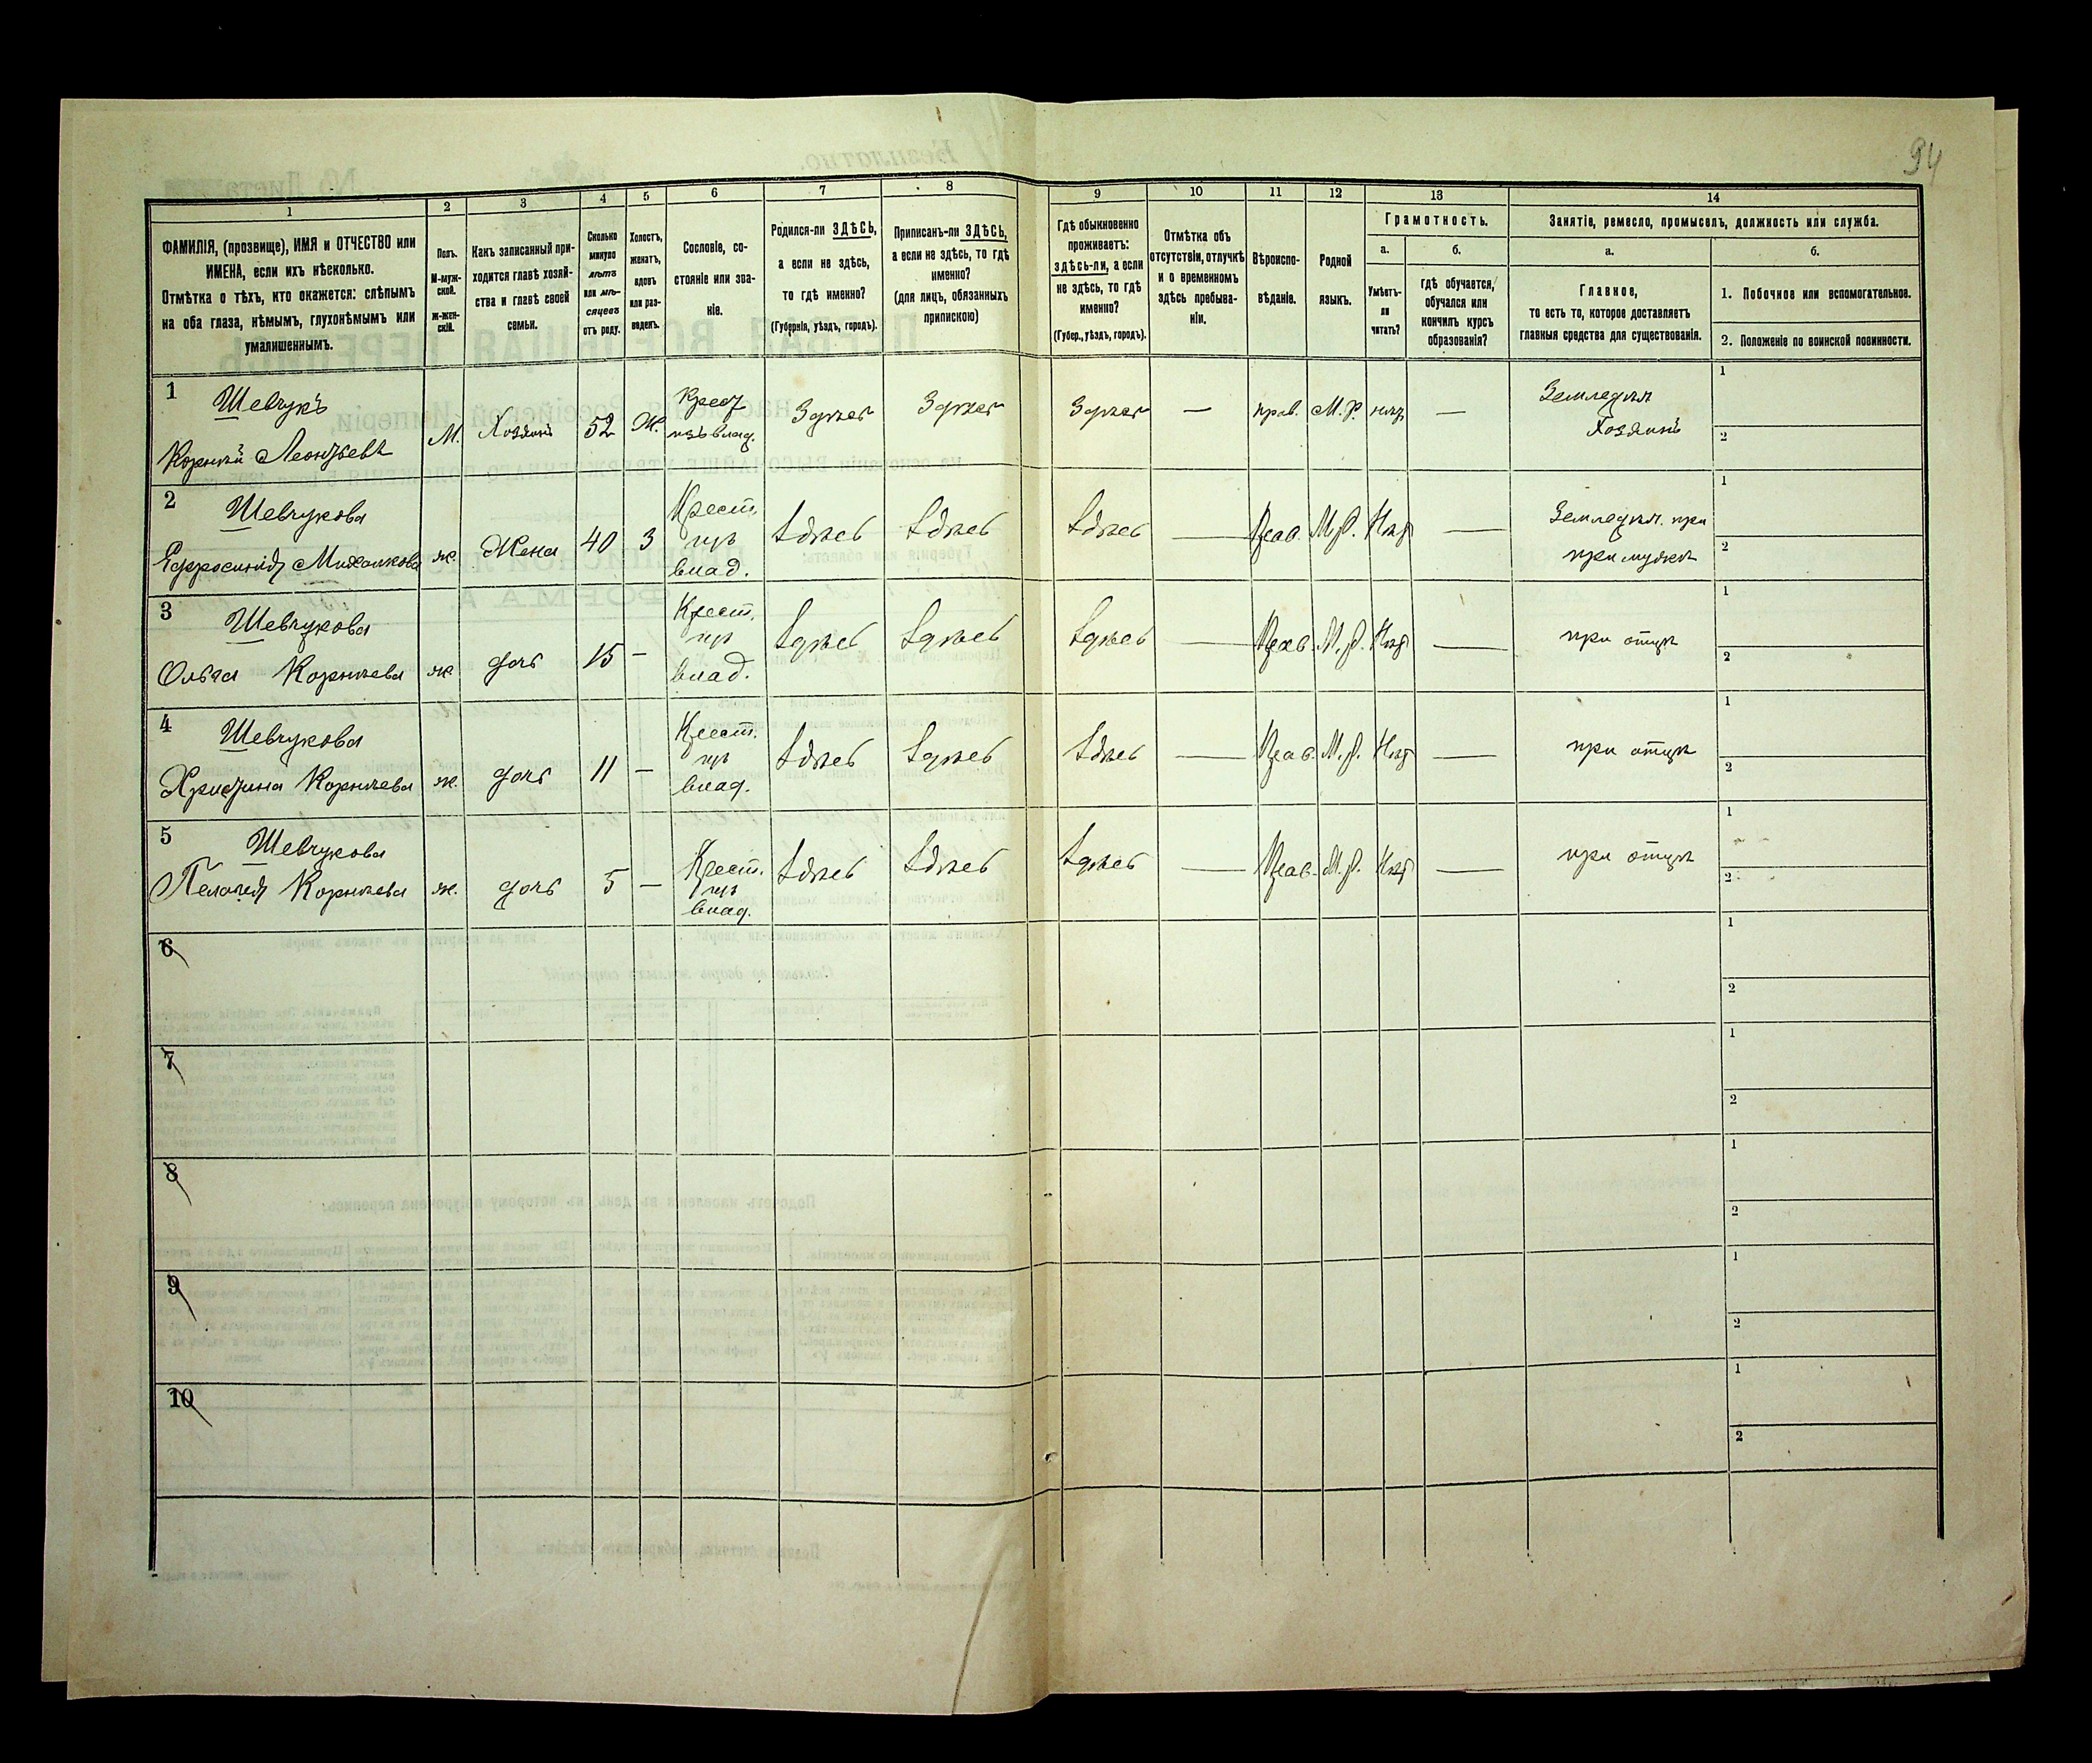 94
1 2 3 4 5 6 7 8 9 10 11 12 13 14
ФАМИЛІЯ, (прозвище), ИМЯ и ОТЧЕСТВО или
ИМЕНА, если ихъ нѣсколько.
Отмѣтка о тѣхъ, кто окажется: слѣпымъ
на оба глаза, нѣмымъ, глухонѣмымъ или
умалишеннымъ.
Полъ.
М-муж-
ской.
ж-жен-
скій.
Какъ записанный при-
ходится главѣ хозяй-
ства и главѣ своей
семьи.
Сколько
минуло
лѣтъ
или мѣ-
сяцевъ
отъ роду.
Холостъ,
женатъ,
вдовъ
или раз-
веденъ.
Сословіе, со-
стояніе или зва-
ніе.
Родился-ли ЗДѢСЬ,
а если не здѣсь,
то гдѣ именно?
(Губернія, уѣздъ, городъ).
Приписанъ-ли ЗДѢСЬ,
а если не здѣсь, то гдѣ
именно?
(для лицъ, обязанныхъ
припискою)
Гдѣ обыкновенно
проживаетъ:
здѣсь-ли, а если
не здѣсь, то гдѣ
именно?
(Губер., уѣздъ, городъ).
Отмѣтка объ
отсутствіи, отлучкѣ
и о временномъ
здѣсь пребыва-
ніи.
Вѣроиспо-
вѣданіе.
Родной
языкъ.
Грамотность.
а.
Умѣетъ-
ли
читать?
б.
гдѣ обучается,
обучался или
кончилъ курсъ
образованія?
Занятіе, ремесло, промыселъ, должность или служба.
а.
Главное,
то есть то, которое доставляетъ
главныя средства для существованія.
б.
1. Побочное или вспомогательное.
2. Положеніе по воинской повинности.
1 Шевчукъ
Корнѣй Леонтьевъ
М. Хозяинъ 52 Ж. Крест
изъ влад.
Здѣсь Здѣсь Здѣсь — прав. М. Р. нѣтъ —
Земледѣл.
Хозяинъ
1
2
2 Шевчукова
Ефросинія Михалкова
ж. Жена 40 З Крест.
изъ
влад.
Здѣсь Здѣсь Здѣсь — Прав. М. Р. Нѣтъ —
Земледѣл. при
при мужѣ
1
2
3 Шевчукова
Ольга Корнѣева
ж. дочь 15 — Крест.
изъ
влад.
Здѣсь Здѣсь Здѣсь — Прав. М. Р. Нѣтъ —
при отцѣ
1
2
4 Шевчукова
Христина Корнѣева
ж. дочь 11 — Крест.
изъ
влад.
Здѣсь Здѣсь Здѣсь — Прав. М. Р. Нѣтъ —
при отцѣ
1
2
5 Шевчукова
Пелагея Корнѣева
ж. дочь 5 — Крест.
изъ
влад.
Здѣсь Здѣсь Здѣсь — Прав. М. Р. Нѣтъ —
при отцѣ
1
2
6
1
2
7
1
2
8
1
2
9
1
2
10
1
2